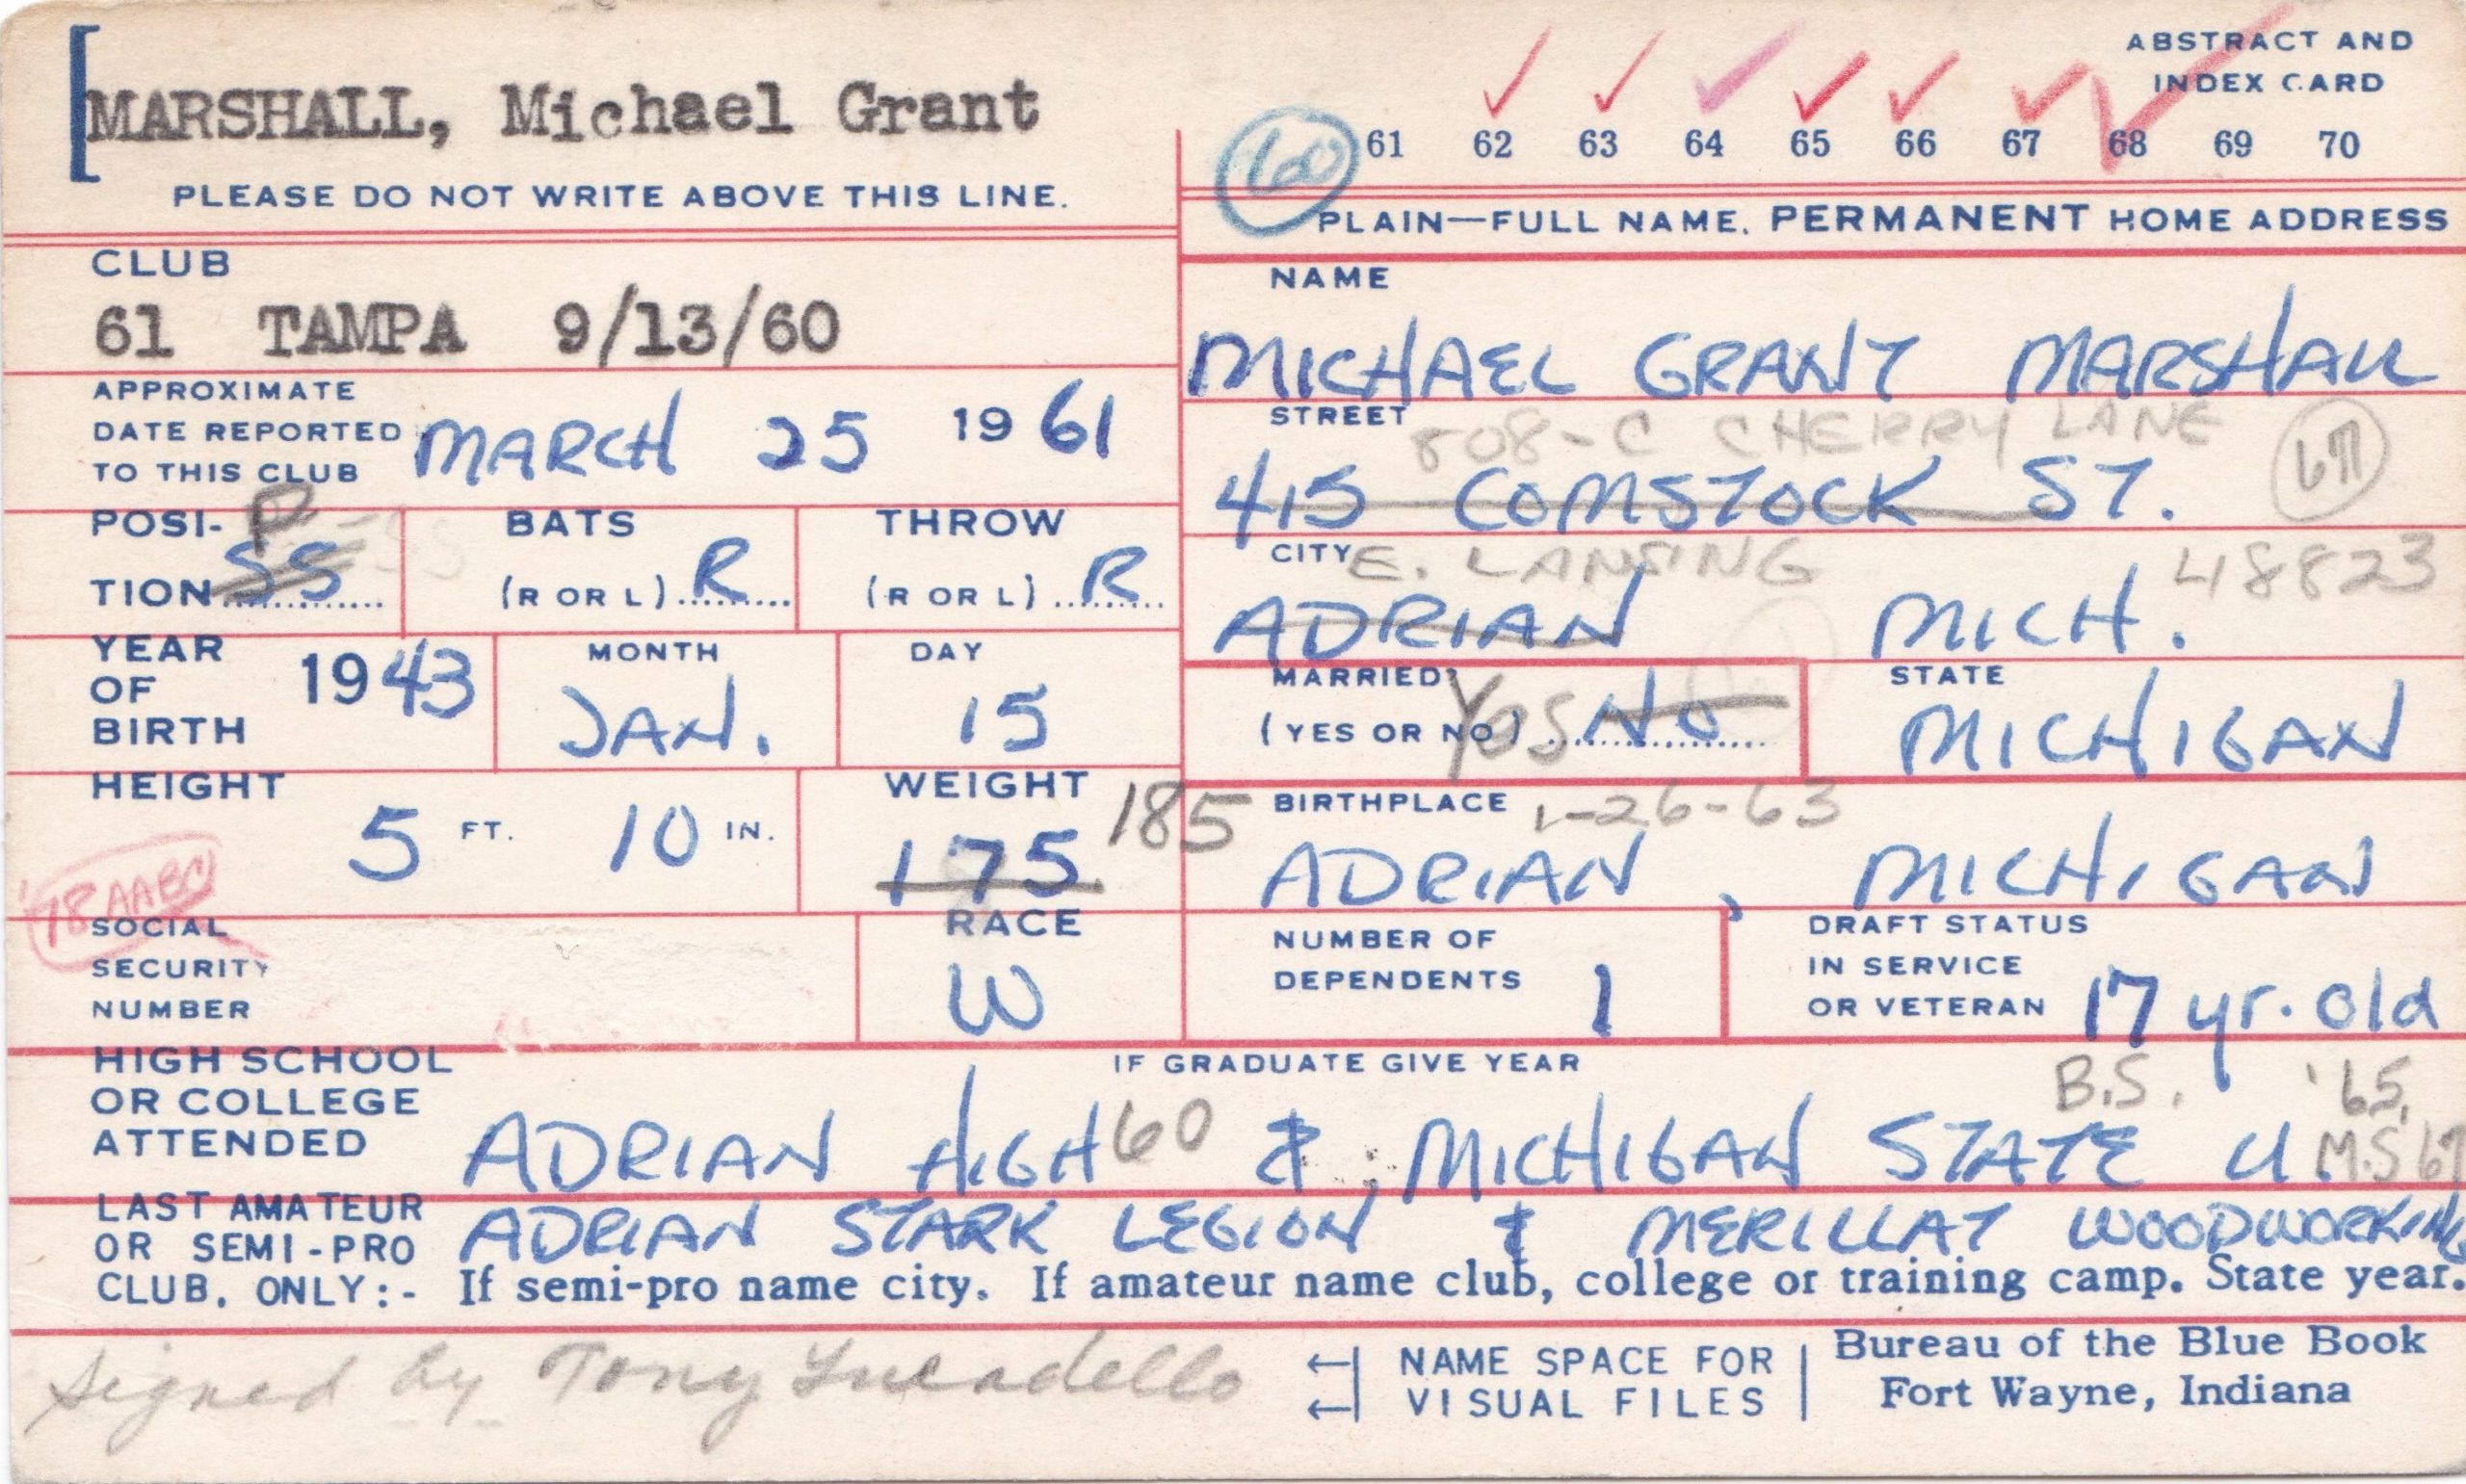 MARSHALL, Michael Grant
PLEASE DO NOT WRITE ABOVE THIS LINE.
ABSTRACT AND
INDEX CARD
60 61 62 63 64 65 66 67 68 69 70
PLAIN—FULL NAME, PERMANENT HOME ADDRESS
CLUB
61 TAMPA 9/13/60
NAME
MICHAEL GRANT MARSHALL
APPROXIMATE
DATE REPORTED
TO THIS CLUB MARCH 25 1961
STREET 808-C CHERRY LANE
415 COMSTOCK ST. 67
POSI- P -SS
TION SS
BATS
(R OR L) R
THROW
(R OR L) R
CITY E. LANSING 48823
ADRIAN MICH.
YEAR
OF
BIRTH 1943
MONTH
JAN.
DAY
15
MARRIED?
(YES OR NO) Yes No
STATE
MICHIGAN
HEIGHT
5 FT. 10 IN.
WEIGHT 185
175
BIRTHPLACE 1-26-63
ADRIAN, MICHIGAN
'78 AABC
SOCIAL
SECURITY
NUMBER
RACE
W
NUMBER OF
DEPENDENTS 1
DRAFT STATUS
IN SERVICE
OR VETERAN 17 yr. old
HIGH SCHOOL
OR COLLEGE
ATTENDED
IF GRADUATE GIVE YEAR
B.S. '65,
ADRIAN HIGH 60 & ; MICHIGAN STATE U M.S 67
LAST AMATEUR
OR SEMI-PRO
CLUB, ONLY:-
ADRIAN STARK LEGION & MERILLAT WOODWORKING
If semi-pro name city. If amateur name club, college or training camp. State year.
Signed by Tony Lucadello
← NAME SPACE FOR
← VISUAL FILES
Bureau of the Blue Book
Fort Wayne, Indiana